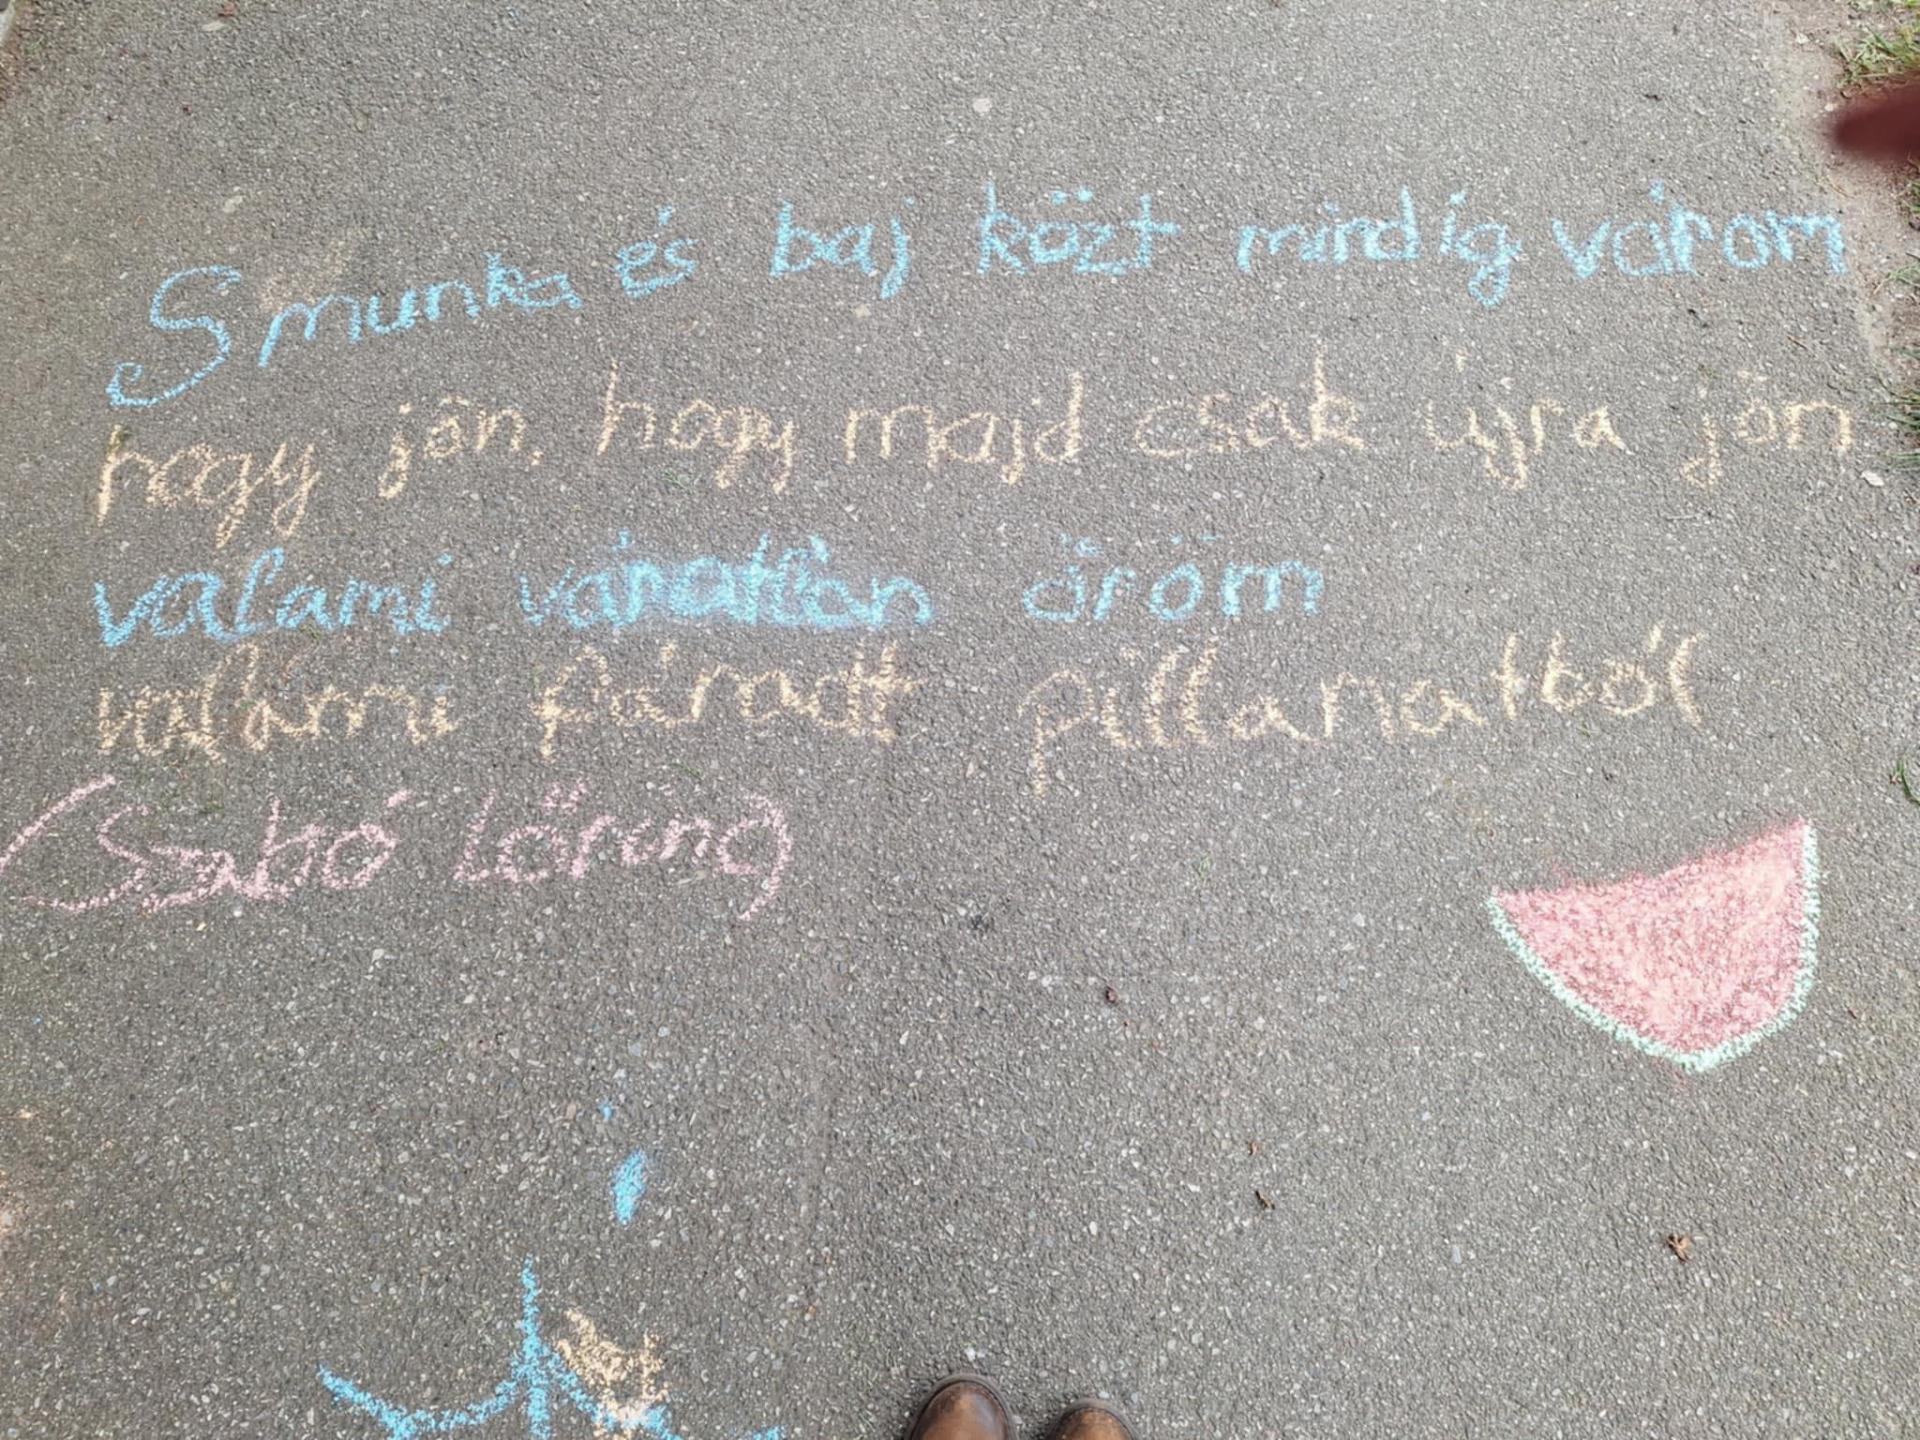 S munka és baj közt mindig várom
hogy jön, hogy majd csak újra jön
valami váratlan öröm
valami fáradt pillanatból
(Szabó Lőrinc)